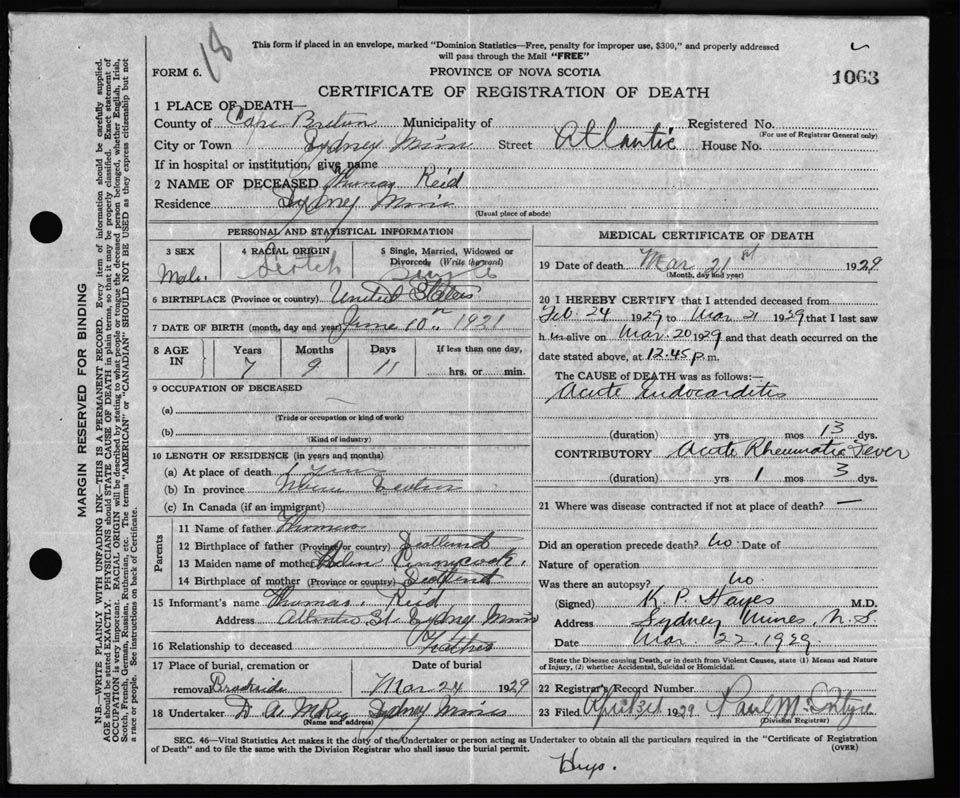 18
This form if placed in an envelope, marked "Dominion Statistics—Free, penalty for improper use, $300," and properly addressed
will pass through the Mail "FREE"
FORM 6.
PROVINCE OF NOVA SCOTIA
1063
CERTIFICATE OF REGISTRATION OF DEATH
1 PLACE OF DEATH—
County of Cape Breton Municipality of Registered No.
(For use of Registrar General only)
City or Town Sydney Mines Street Atlantic House No.
If in hospital or institution, give name
2 NAME OF DECEASED Thomas Reid
Residence Sydney Mines
(Usual place of abode)
PERSONAL AND STATISTICAL INFORMATION
3 SEX Male.
4 RACIAL ORIGIN Scotch
5 Single, Married, Widowed or Divorced, (Write the word) Single
6 BIRTHPLACE (Province or country) United States
7 DATE OF BIRTH (month, day and year) June 10th 1921
8 AGE IN Years 7 Months 9 Days 11 If less than one day, hrs. or min.
9 OCCUPATION OF DECEASED
(a)
(Trade or occupation or kind of work)
(b)
(Kind of industry)
10 LENGTH OF RESIDENCE (in years and months)
(a) At place of death
(b) In province
(c) In Canada (if an immigrant)
Parents
11 Name of father Thomas
12 Birthplace of father (Province or country) Scotland
13 Maiden name of mother
14 Birthplace of mother (Province or country) Scotland
15 Informant's name Thomas Reid
Address Atlantic St. Sydney Mines
16 Relationship to deceased Father
17 Place of burial, cremation or removal Brookside
Date of burial Mar 24 1929
18 Undertaker Sydney Mines
(Name and address)
MEDICAL CERTIFICATE OF DEATH
19 Date of death Mar 21st 1929
(Month, day and year)
20 I HEREBY CERTIFY that I attended deceased from
Feb 24 1929 to Mar 21 1929 that I last saw
h im alive on Mar. 20 1929 and that death occurred on the
date stated above, at 12.45 p.m.
The CAUSE of DEATH was as follows:—
Acute Endocarditis
(duration) yrs mos 13 dys.
CONTRIBUTORY Acute Rheumatic Fever
(duration) yrs 1 mos 3 dys.
21 Where was disease contracted if not at place of death? —
Did an operation precede death? No Date of
Nature of operation
Was there an autopsy? No.
(Signed) K P. Hayes M.D.
Address Sydney Mines, N.S.
Date Mar 22 1929
State the Disease causing Death, or in death from Violent Causes, state (1) Means and Nature
of Injury, (2) whether Accidental, Suicidal or Homicidal.
22 Registrar's Record Number
23 Filed April 3rd 1929 Paul
(Division Registrar)
SEC. 46—Vital Statistics Act makes it the duty of the Undertaker or person acting as Undertaker to obtain all the particulars required in the "Certificate of Registration
of Death" and to file the same with the Division Registrar who shall issue the burial permit.
(OVER)
MARGIN RESERVED FOR BINDING
N.B.—WRITE PLAINLY WITH UNFADING INK—THIS IS A PERMANENT RECORD. Every item of information should be carefully supplied.
AGE should be stated EXACTLY. PHYSICIANS should STATE CAUSE OF DEATH in plain terms, so that it may be properly classified. Exact statement of
OCCUPATION is very important. RACIAL ORIGIN will be described by stating to what people or tongue the deceased person belonged, whether English, Irish,
Scotch, French, German, Russian, Ruthenian, etc. The terms "AMERICAN" or "CANADIAN" SHOULD NOT BE USED as they express citizenship but not
a race or people. See instructions on back of Certificate.